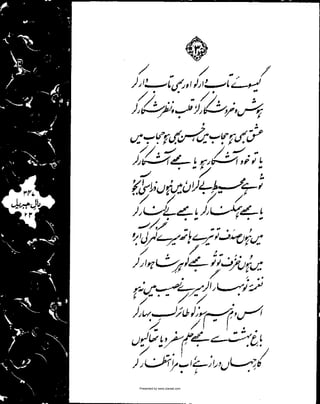 ۳
گیسوئے تابدار کو اور بھی تابدار کر
ہوش و خرد شکار کر قلب و نظر شکار کر
عشق بھی ہو حجاب میں حسن بھی ہو حجاب میں
یا تو خود آشکار ہو یا مجھے آشکار کر
تو ہے محیطِ بیکراں میں ہوں ذرا سی آبجو
یا مجھے ہمکنار کر یا مجھے بے کنار کر
میں ہوں صدف تو تیرے ہاتھ میرے گہر کی آبرو
میں ہوں خزف تو تو مجھے گوہرِ شاہوار کر
نغمۂ نوبہار اگر میرے نصیب میں نہ ہو
اس دمِ نیم سوز کو طائرکِ بہار کر
باغِ بہشت سے مجھے حکمِ سفر دیا تھا کیوں
کارِ جہاں دراز ہے اب مرا انتظار کر
بالِ جبریل
۲۳
Presented by